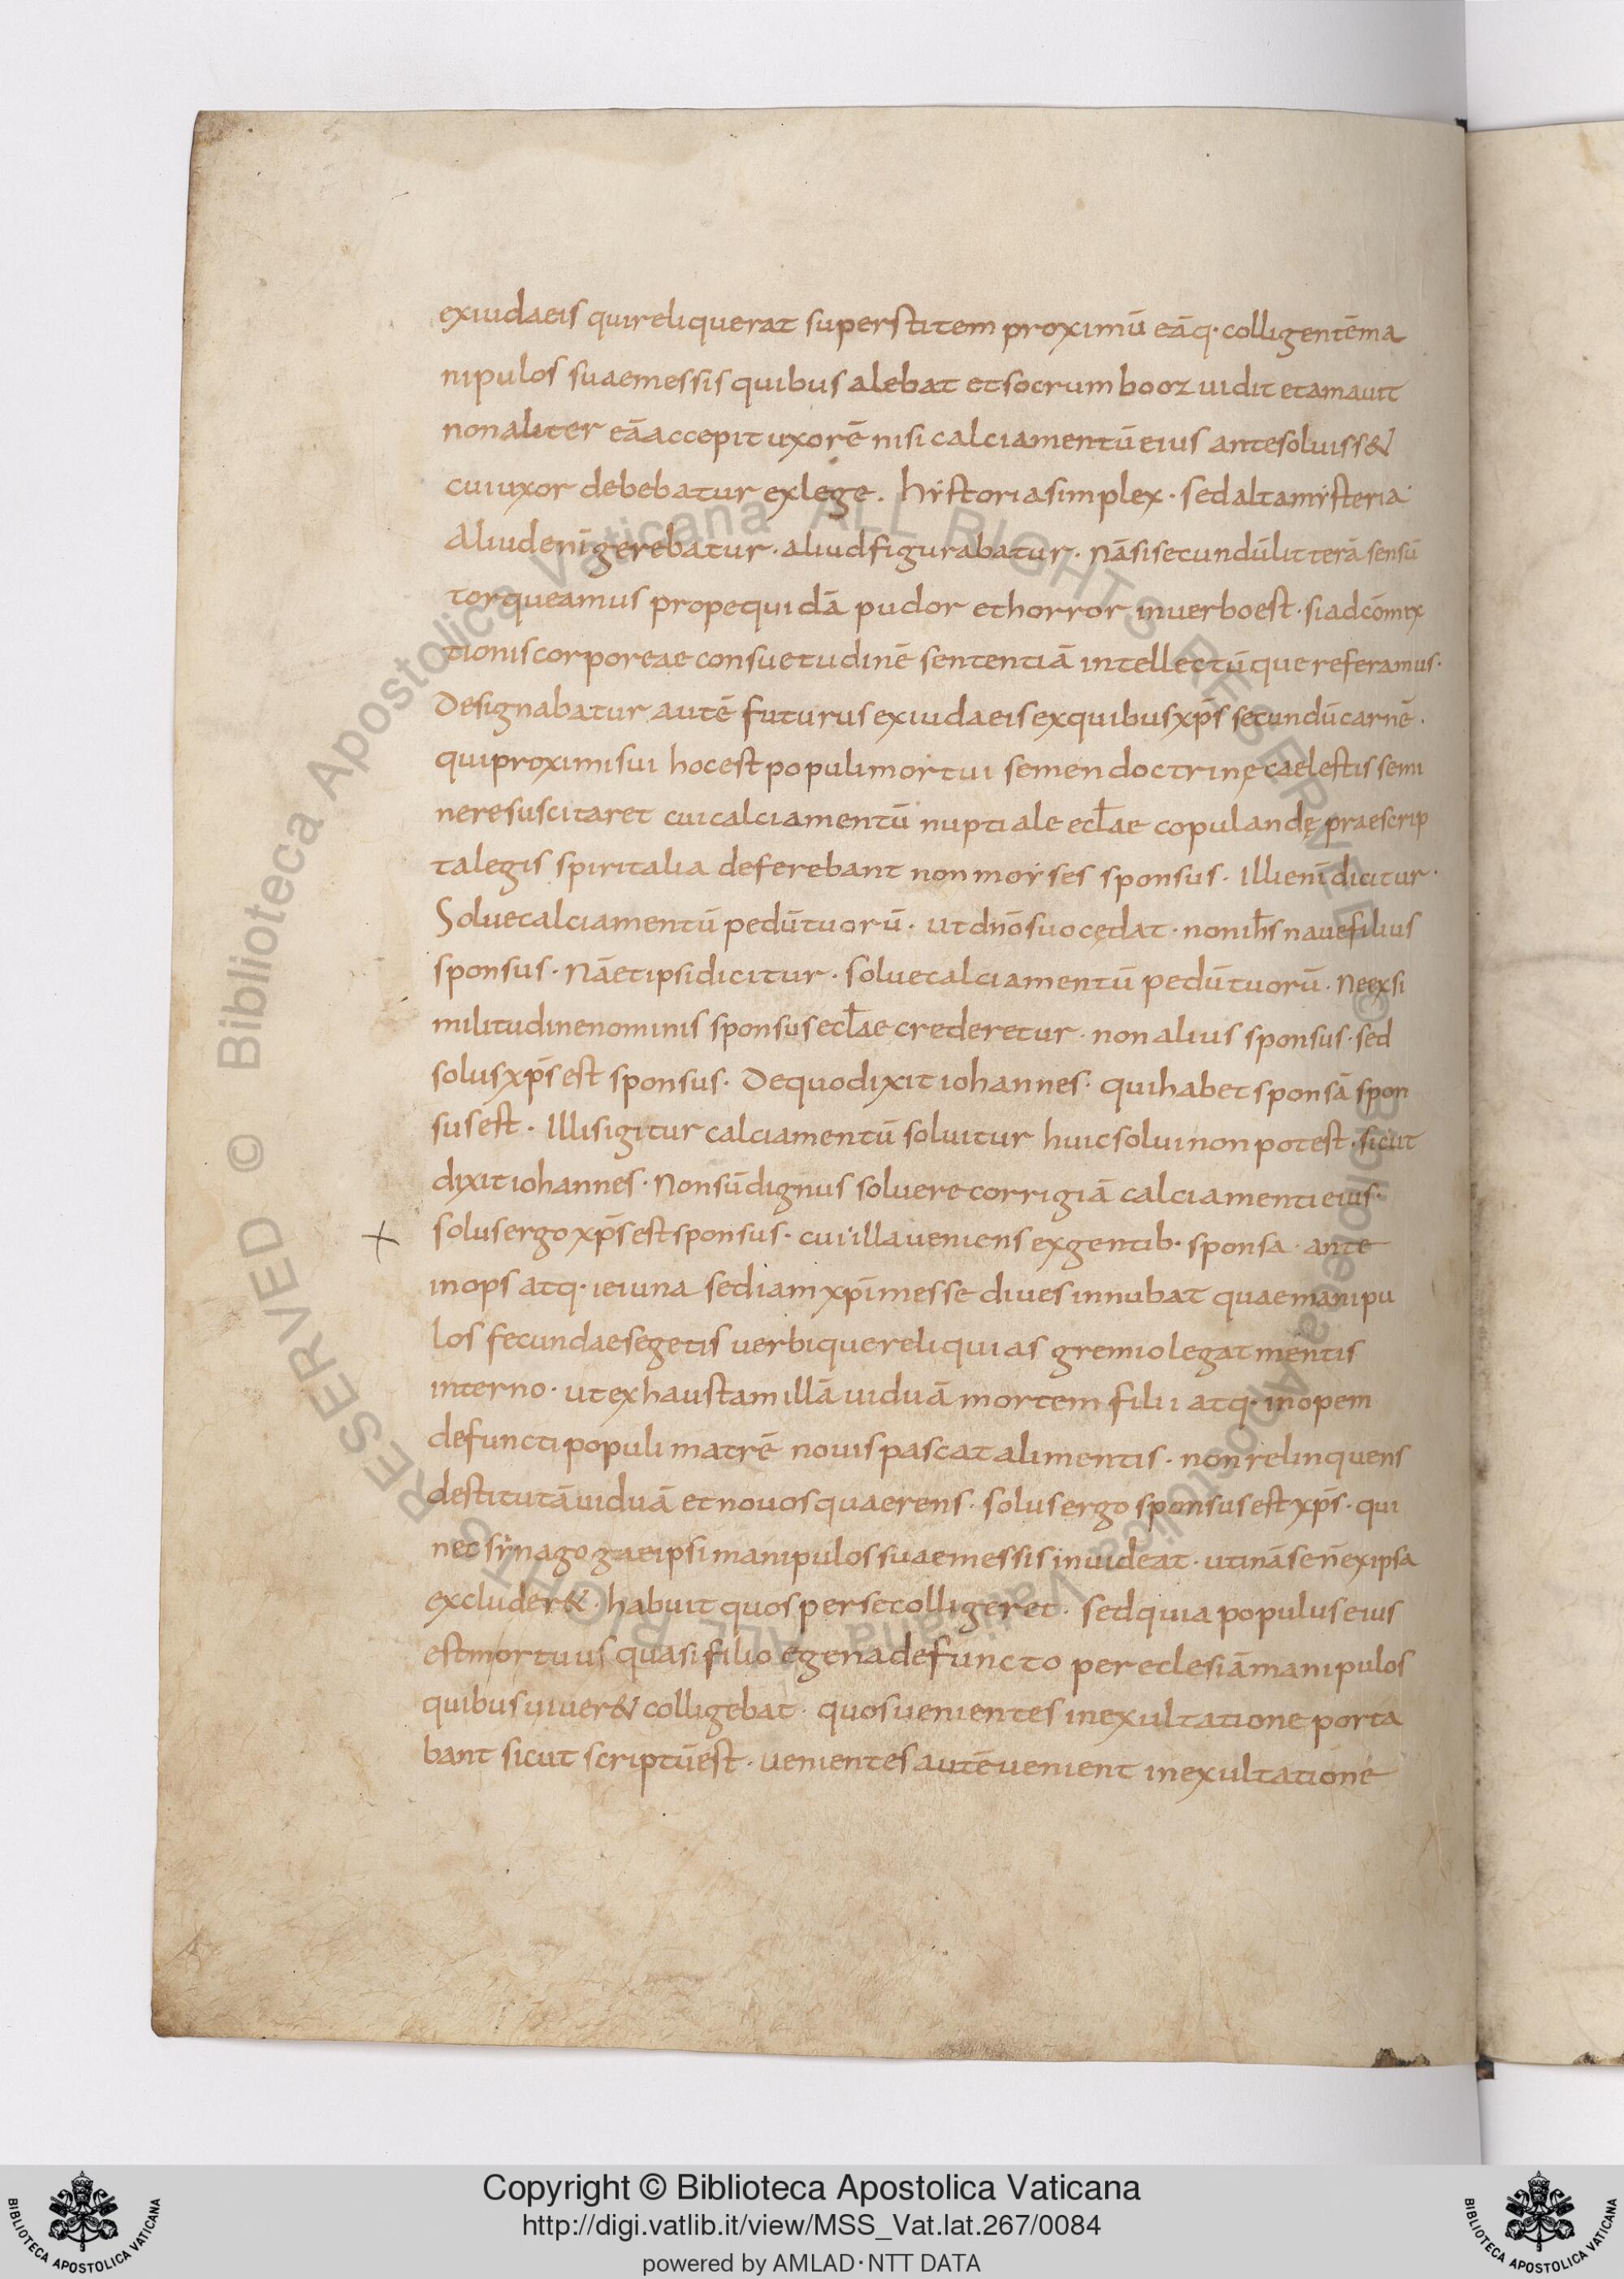 exiudaeis quireliquerat superstitem proximū eāq· colligentēma
nipulos suaemessis quibus alebat etsocrum booz uidit etamauit
nonaliter eāaccepit uxorē nisi calciamentūeius antesoluiss&
cuiuxor debebatur exlege. hẏstoriasimplex· sedaltamẏsteria
Aliudenī gerebatur· aliudfigurabatur· Nāsisecundūlitterā sensū
torqueamus propequidā pudor ethorror inuerboest· siadcōmix
tioniscorporeae consuetudinē sententiā intellectūque referamus·
Designabatur autē futurus exiudaeis exquibus xp̄s secundūcarnē·
quiproximisui hocest populimortui semen doctrinę caelestis semi
neresuscitaret cuicalciamentū nuptiale ecl̄ae copulandę praescrip
talegis spiritalia deferebant non moẏses sponsus· Illienī dicitur·
Soluecalciamentū pedūtuorū· utdn̄osuocędat· nonih̄s nauefilius
sponsus· Nāetipsidicitur· soluecalciamentū pedūtuorū· Neexsi
militudinenominis sponsusecl̄ae crederetur· non alius sponsus· sed
solusxp̄s est sponsus· Dequodixit iohannes· quihabet sponsā spon
susest· Illisigitur calciamentū soluitur huicsoluinon potest· sicut
dixitiohannes· Nonsūdignus soluerecorrigiā calciamentieius·
solusergo xp̄s est sponsus· cui illaueniens exgentib· sponsa· ante
inops atq· ieiuna sediam xp̄imesse diues innubat quaemanipu
los fecundaesegetis uerbiquereliquias gremiolegatmentis
interno· utexhaustamillā uiduā mortem filii atq· inopem
defuncti populi matrē nouis pascatalimentis· nonrelinquens
destitutāuiduā etnouosquaerens· solusergo sponsusest xp̄s· qui
necsẏnagogaeipsi manipulos suaemessis inuideat· utināsen̄exipsa
excluder&· habuit quospersecolligeret· sedquia populuseius
estmortuus quasifilio egenadefuncto pereclesiāmanipulos
quibusuiuer& colligebat· quosuenientes inexultatione porta
bant sicut scriptūest· uenientes autēuenient inexultatione
Copyright © Biblioteca Apostolica Vaticana
http://digi.vatlib.it/view/MSS_Vat.lat.267/0084
powered by AMLAD · NTT DATA
BIBLIOTECA APOSTOLICA VATICANA
BIBLIOTECA APOSTOLICA VATICANA
© Biblioteca Apostolica Vaticana ALL RIGHTS RESERVED
© Biblioteca Apostolica Vaticana ALL RIGHTS RESERVED